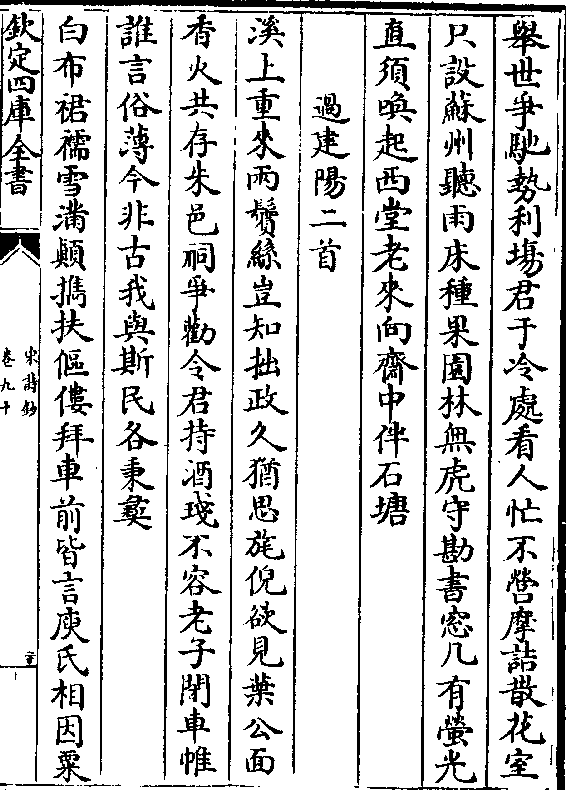 舉世爭馳勢利塲君于冷處看人忙不營摩詰散花室
只設蘇州聽雨床種果園林無虎守勘書窓几有螢光
直須喚起西堂老來向齋中伴石塘
過建陽二首
溪上重來兩鬢絲豈知拙政久猶思旄倪欲見葉公面
香火共存朱邑祠爭勸令君持酒琖不容老子閉車帷
誰言俗薄今非古我與斯民各秉彛
白布裙襦雪滿顛擕扶傴僂拜車前皆言庾氏相因粟
欽定四庫全書
宋詩鈔
卷九十